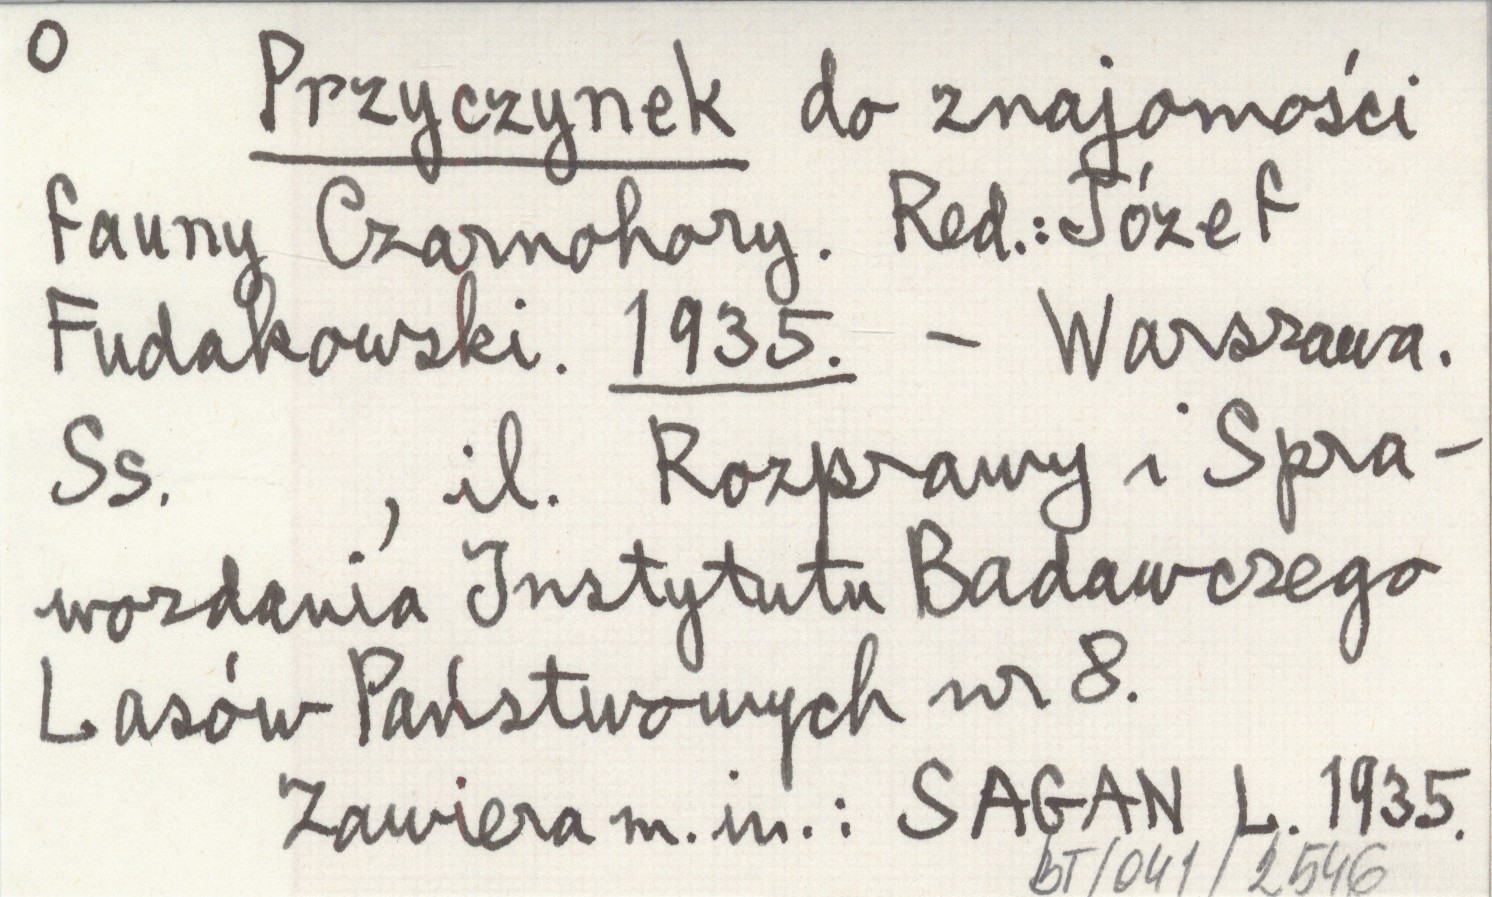 O
Przyczynek do znajomości
fauny Czarnohory. Red.: Józef
Fudakowski. 1935. - Warszawa.
Ss. , il. Rozprawy i Spra-
wozdania Instytutu Badawczego
Lasów Państwowych nr 8.
Zawiera m.in.: SAGAN L. 1935.
bT/041/2546